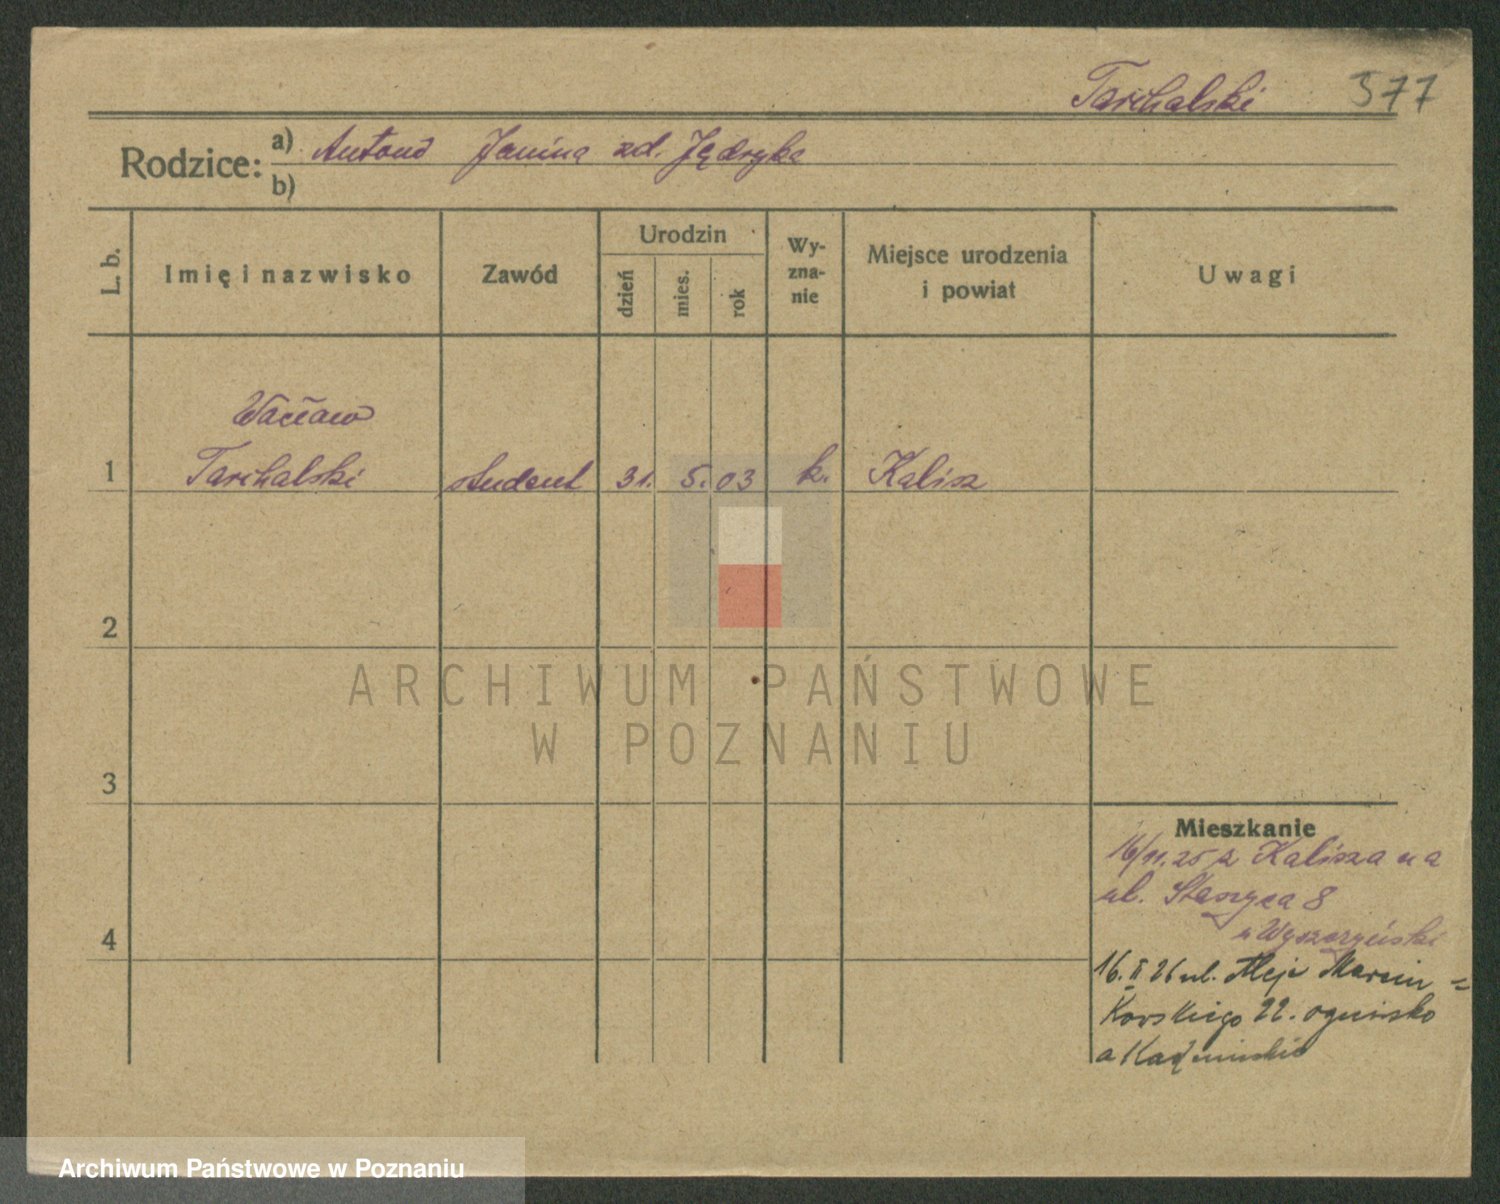 Tarchalski 377
Rodzice: a) Antoni Janina zd. Jędryka
b)
L. b. Imię i nazwisko Zawód Urodzin dzień mies. rok Wy-zna-nie Miejsce urodzenia i powiat Uwagi
Wacław
1 Tarchalski student 31. 5. 03 k. Kalisz
2
ARCHIWUM PAŃSTWOWE
W POZNANIU
3
Mieszkanie
16/11.25 z Kalisza na
ul. Staszyca 8
u Wyszczyński
4
16. II 26 ul. Aleje Marcin =
Kowskiego 22. ognisko
a
Archiwum Państwowe w Poznaniu